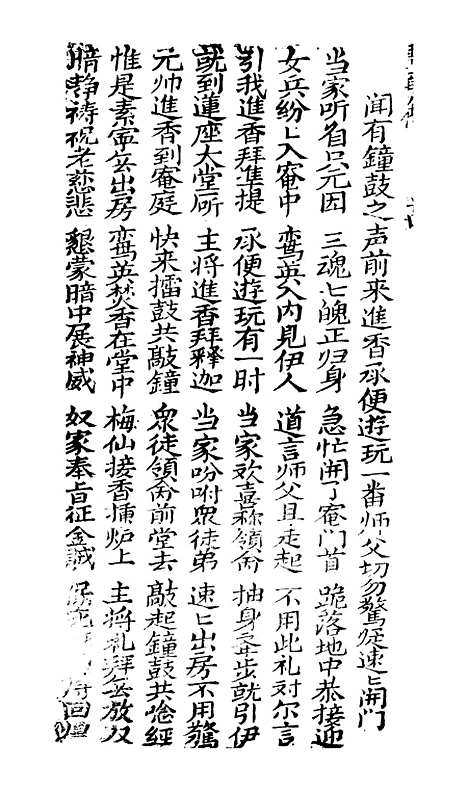 闻有鐘鼓之声前来進香承便遊玩一番师父切勿驚疑速匕開门
当家听着只元因 三魂七魄正归身 急忙開了庵门首 跪落地中恭接迎
女兵纷匕入庵中 鸾英入内見伊人 道言师父且走起 不用此礼对尔言
引我進香拜準提 承便遊玩有一时 当家欢喜称領命 抽身移步就引伊
就到蓮座大堂所 主将進香拜釋迦 当家吩咐衆徒弟 速匕出房不用驚
元帅進香到庵庭 快来擂鼓共敲鐘 衆徒領命前堂去 敲起鐘鼓共唸經
惟是素寧去出房 鸾英焚香在堂中 梅仙接香插炉上 主将礼拜去放双
暗静祷祝老慈悲 懇蒙暗中展神威 奴家奉旨征金誠